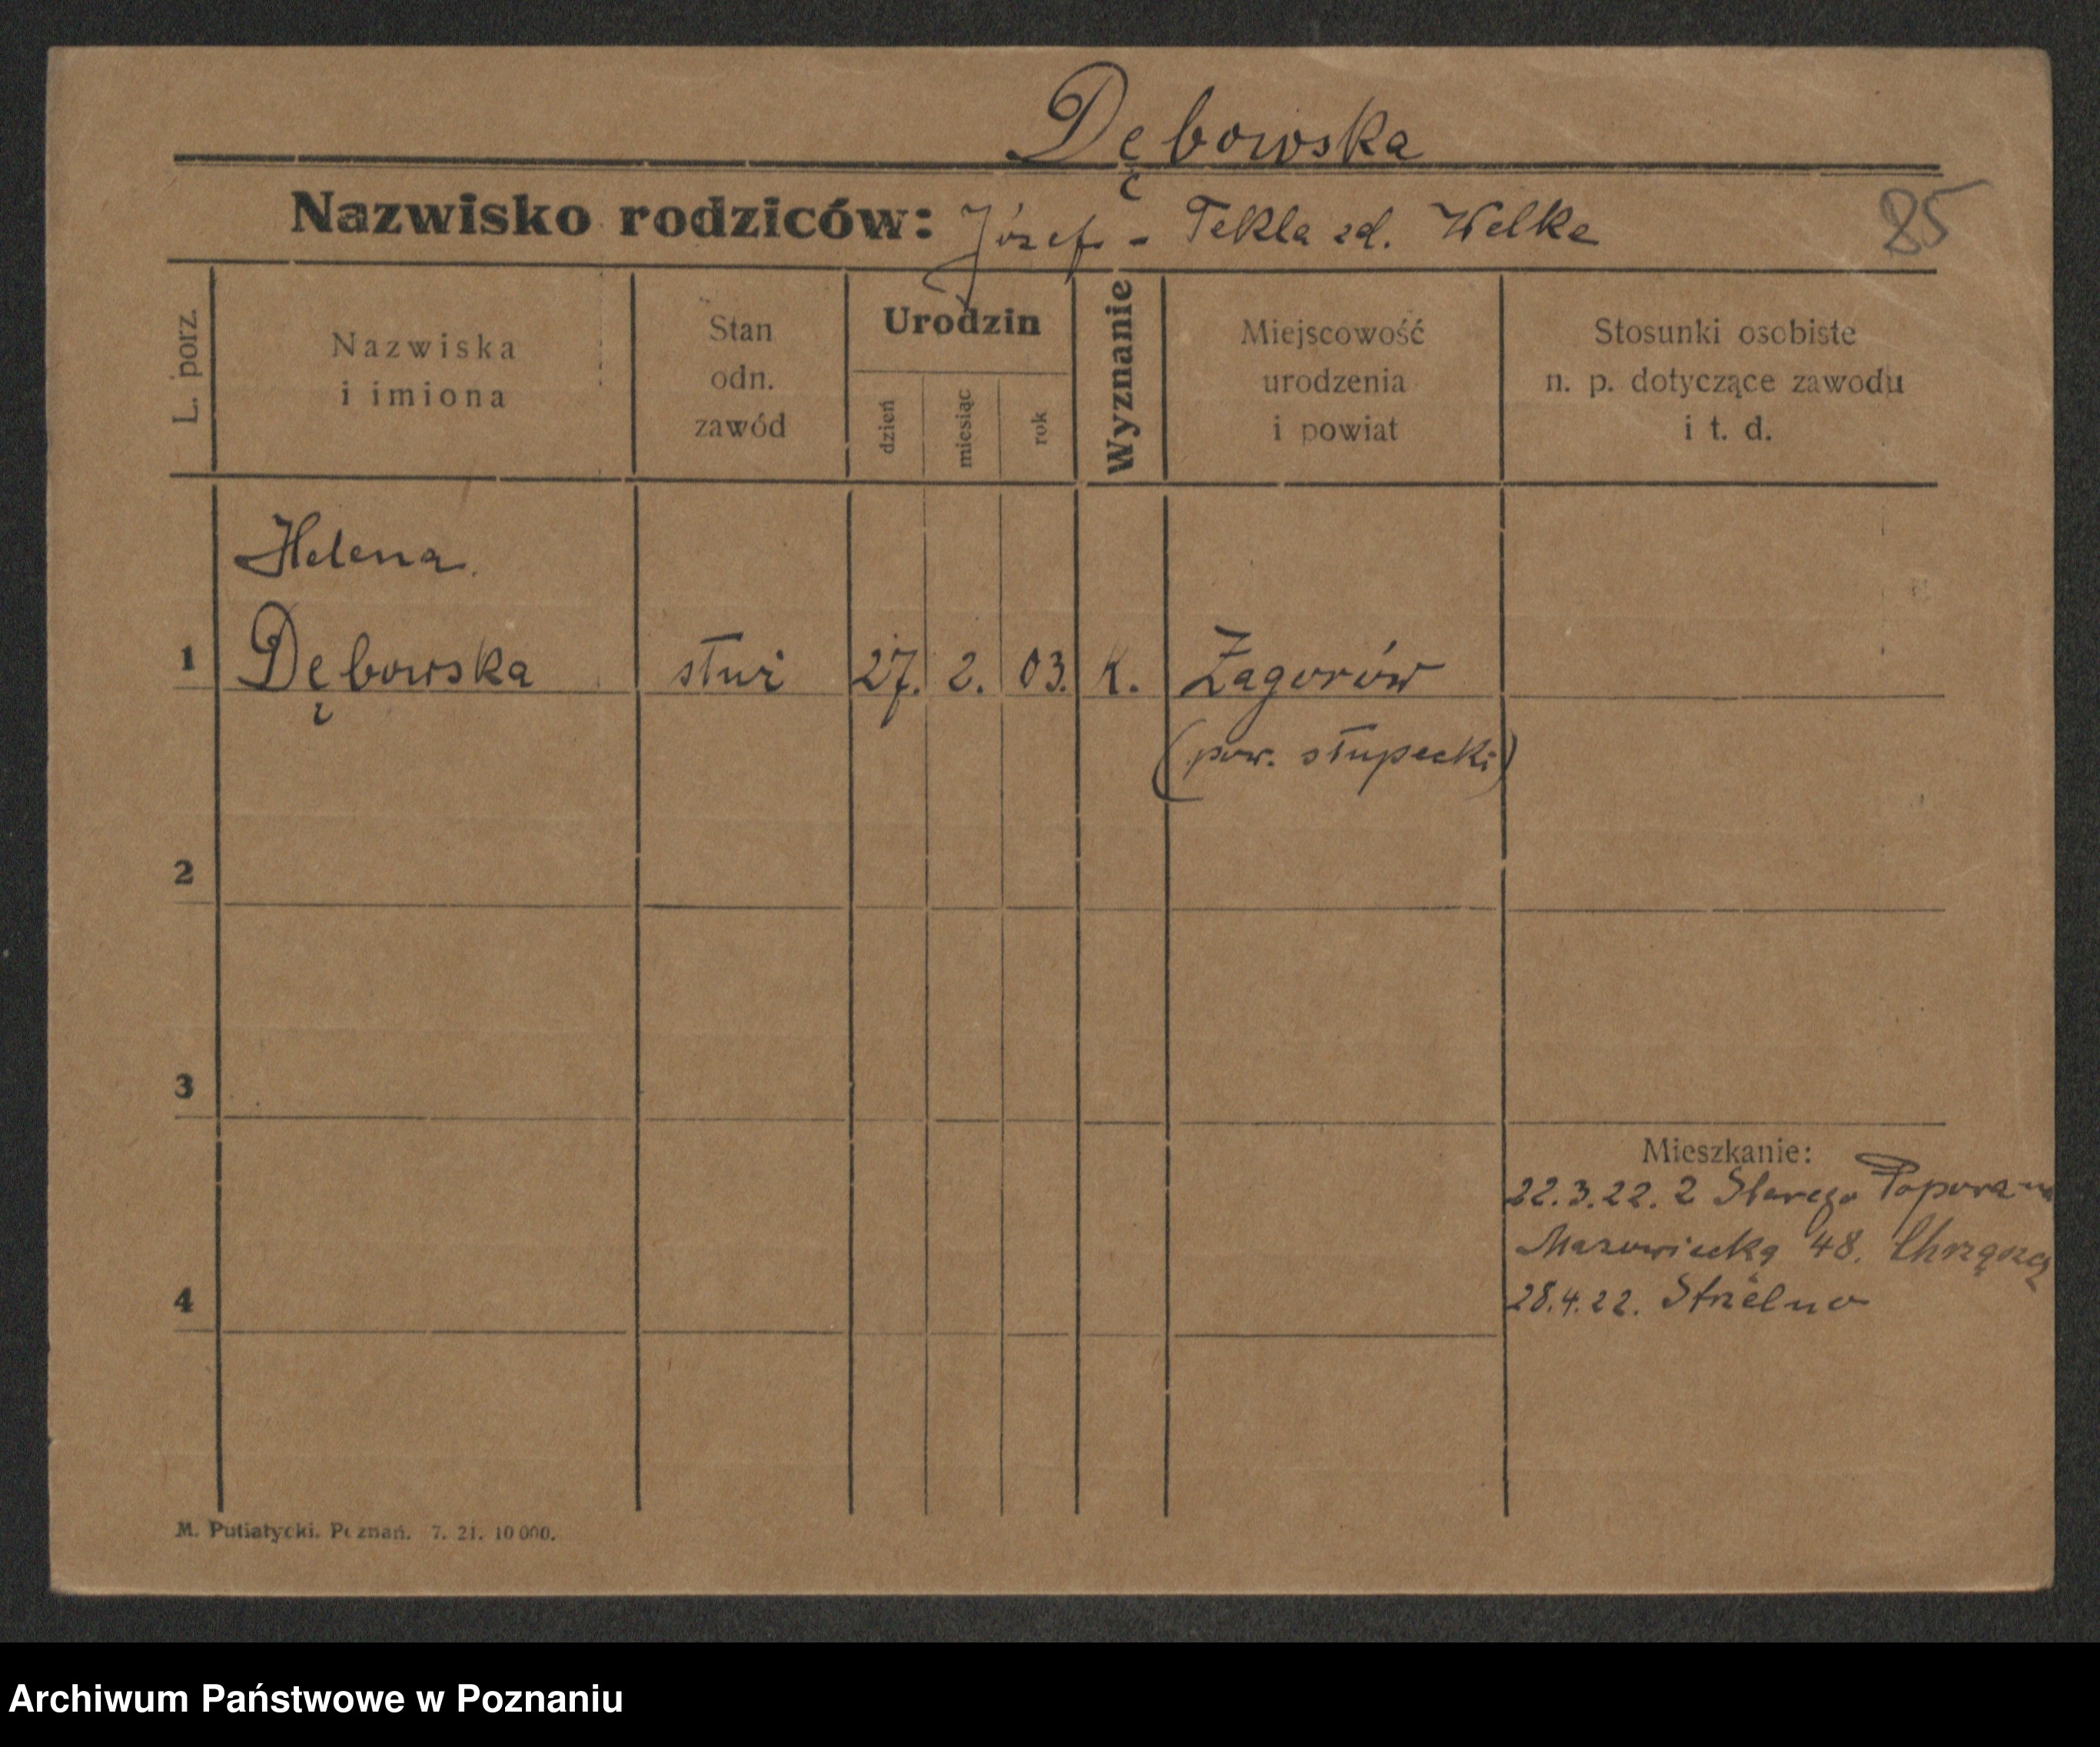 Dębowska
Nazwisko rodziców: Józef - Tekla zd. Welke
85
L. porz.
Nazwiska
i imiona
Stan
odn.
zawód
Urodzin
dzień
miesiąc
rok
Wyznanie
Miejscowość
urodzenia
i powiat
Stosunki osobiste
n. p. dotyczące zawodu
i t. d.
Helena
1 Dębowska służ 27. 2. 03. K. Zagorów
(pow. słupecki)
2
3
Mieszkanie:
22.3.22. z Starego
Mazowiecką 48.
4
28.4.22. Strzelno
M. Putiatycki. Poznań. 7. 21. 10 000.
Archiwum Państwowe w Poznaniu